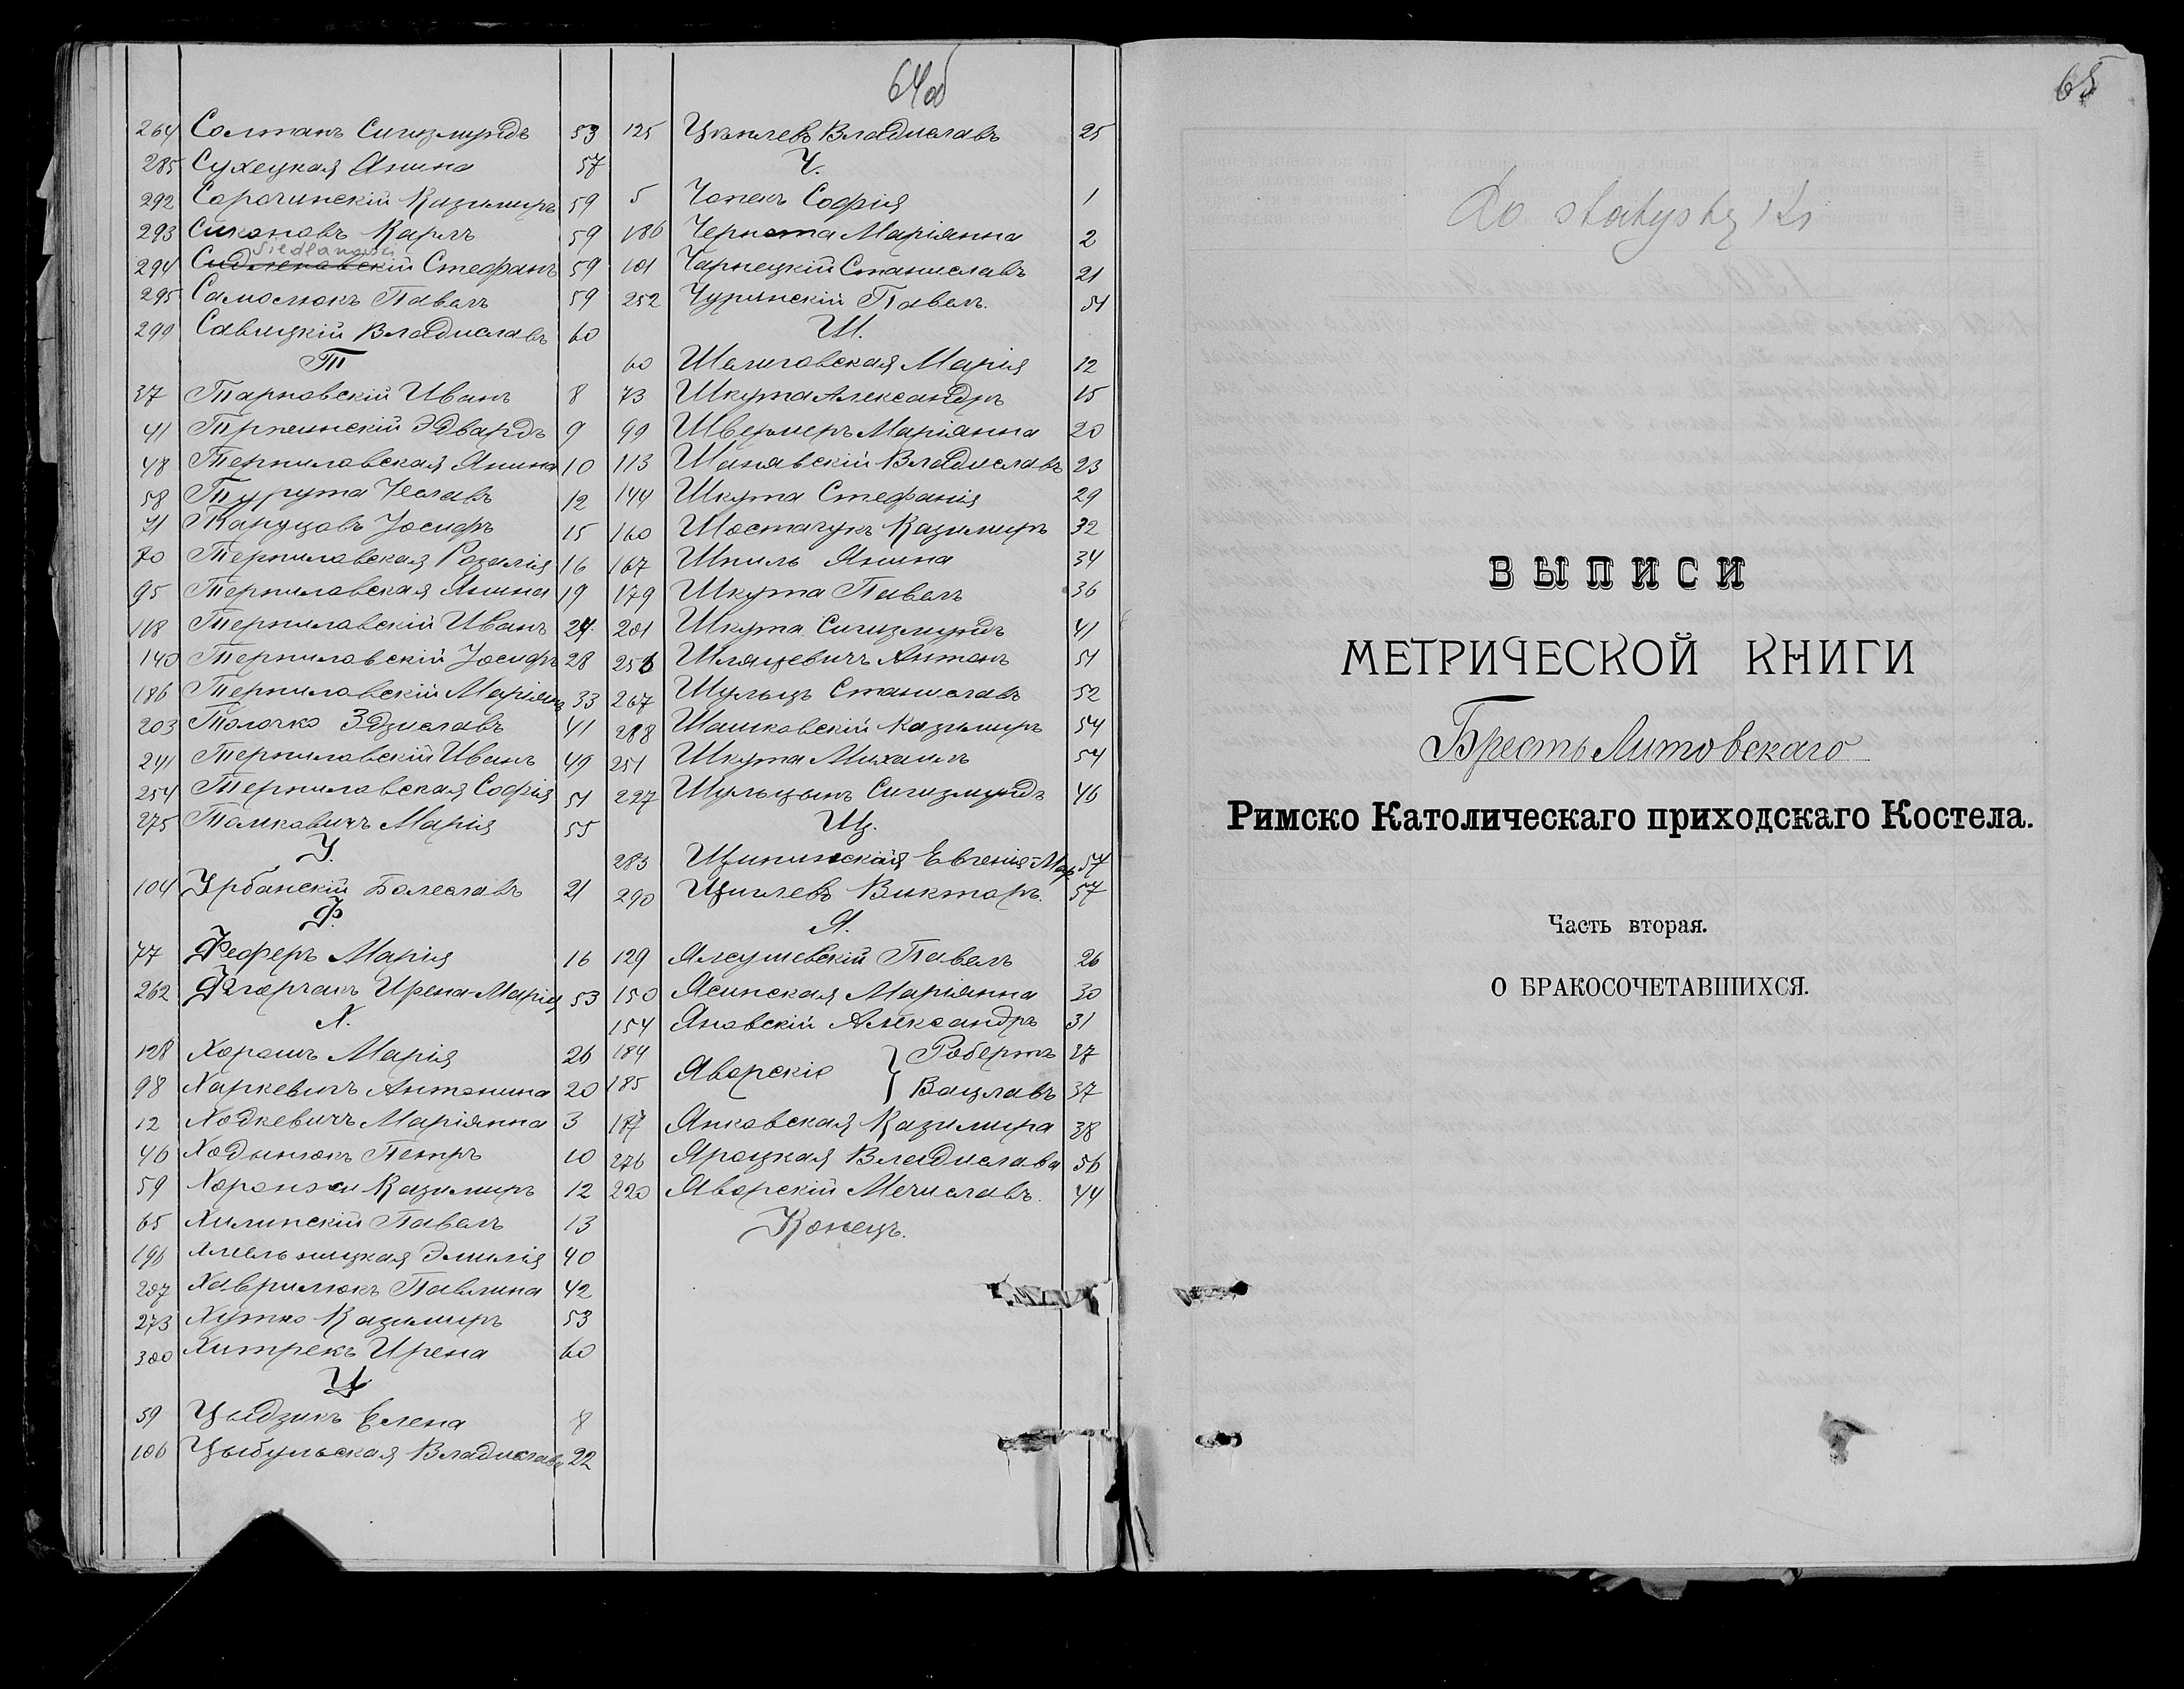 64об
264 Солтанъ Сигизмундъ 53
285 Сухецкая Янина 57
292 Сорочинскій Казимиръ 59
293 Сикановъ Карлъ 59
Siedlanowski
294 Сидленовскій Стефанъ 59
295 Самолюкъ Павелъ 59
299 Савицкій Владиславъ 60
Т
37 Тарновскій Иванъ 8
41 Тржеинскій Эдвардъ 9
48 Терпиловская Янина 10
58 Турута Чеславъ 12
71 Іосифъ 15
70 Терпиловская Розалія 16
95 Терпиловская Янина 19
118 Терпиловскій Иванъ 24
140 Терпиловскій Іосифъ 28
186 Терпиловскій Маріянъ 33
203 Толочко Здзиславъ 41
241 Терпиловскій Иванъ 49
254 Терпиловская Софія 51
275 Толкавичъ Марія 55
У.
104 Урбанскій Болеславъ 21
Ф.
77 Феферъ Марія 16
262 Ирена-Марія 53
Х.
128 Хорошъ Марія 26
98 Харкевичъ Антонина 20
12 Ходкевичъ Маріянна 3
46 Ходынюкъ Петръ 10
59 Хоронжи Казимиръ 12
65 Хилинскій Павелъ 13
196 Хмельницкая Эмилія 40
207 Хаврилюкъ Павлина 42
273 Хутко Казимиръ 53
300 Хитрекъ Ирена 60
Ц
59 Цыдзикъ Елена 8
106 Цыбульская Владислава 22
125 Владиславъ 25
Ч.
5 Чопекъ Софія 1
186 Чернота Маріянна 2
101 Чарнецкій Станиславъ 21
252 Чуринскій Павелъ. 51
Ш.
60 Шелиговская Марія 12
73 Шкута Александръ 15
99 Швермеръ Маріянна 20
113 Шанявскій Владиславъ 23
144 Шкута Стефанія 29
160 Шостачукъ Казимиръ 32
167 Шпиль Янина 34
179 Шкута Павелъ 36
201 Шкута Сигизмундъ 41
256 Шляцевичъ Антонъ 51
267 Шульцъ Станиславъ 52
288 Машковскій Казимиръ 54
251 Шкута Михаилъ 54
227 Шульцынъ Сигизмундъ 46
Щ.
283 Щипинская Евгенія-Мар. 57
290 Щиглевъ Викторъ. 57
Я.
129 Ялсушевскій Павелъ 26
150 Ясинская Маріянна 30
154 Яновскій Александръ 31
184 Яворскіе } Робертъ 37
185 Вацлавъ 37
187 Янковская Казимира 38
276 Яроцкая Владислава 56
220 Яворскій Мечиславъ. 44
Конецъ.
65
Do statystyki
ВЫПИСИ
МЕТРИЧЕСКОЙ КНИГИ
Брестъ Литовскаго
Римско Католическаго приходскаго Костела.
Часть вторая.
О БРАКОСОЧЕТАВШИХСЯ.